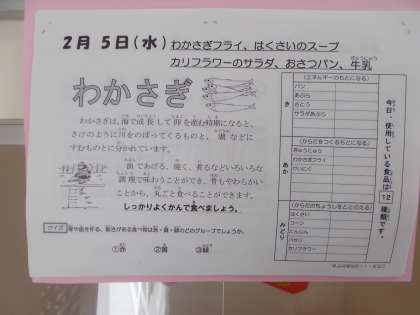 2月 5日(水) わかさぎフライ、はくさいのスープ
カリフラワーのサラダ、おさつパン、牛乳
わかさぎ
わかさぎは、海で成長して卵を産む時期になると、
さけのように川をのぼってくるものと、湖などに
すむものとに分かれています。
油であげる、焼く、煮るなどいろいろな
調理で味わうことができ、骨もやわらかい
ことから、丸ごと食べることができます。
しっかりよくかんで食べましょう。
クイズ
①赤 ②黄 ③緑
今日、使用している食品は12種類です。
き
(エネルギーのもとになる)
パン
あぶら
さとう
サラダあぶら
あか
(からだをつくるもとになる)
ぎゅうにゅう
わかさぎフライ
みどり
(からだのちょうしをととのえる)
はくさい
コーン
にんじん
パセリ
カリフラワー